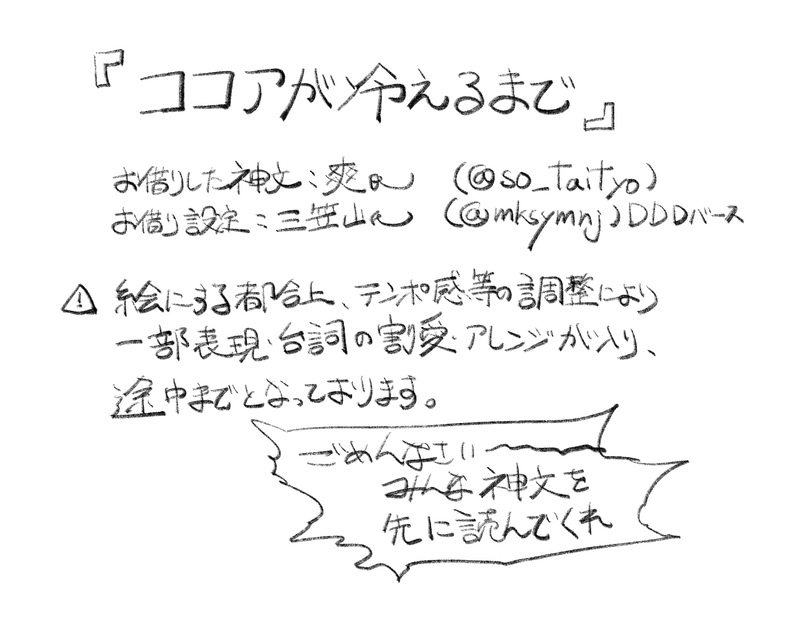 『ココアが冷えるまで』
お借りした神文：爽さん (@so_taityo)
お借り設定：三笠山さん (@mksymnj) DDDバース
⚠ 絵にする都合上、テンポ感等の調整により
一部表現・台詞の割愛・アレンジが入り、
途中までとなっております。
ごめんなさいーー
みんな神文を
先に読んでくれ